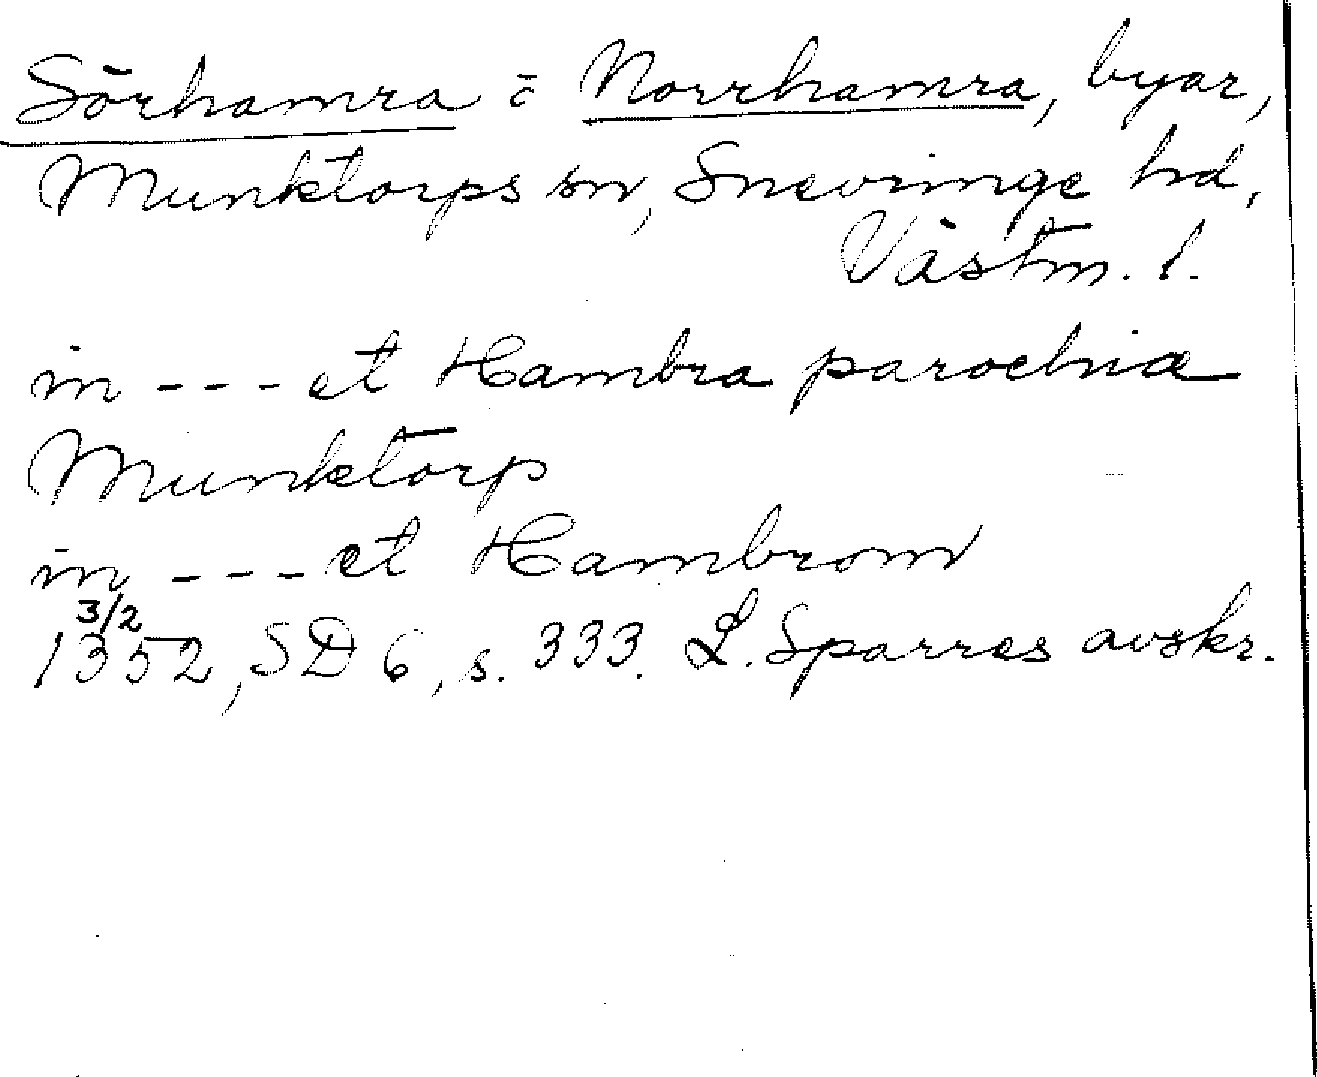 Sörhamra o Norrhamra, byar,
Munktorps sn, Snevringe hd,
Västm. l.
in --- et Hambra parochia
Munktorp
in --- et Hambrom
3/2
1352, SD 6, s. 333. L. Sparres avskr.